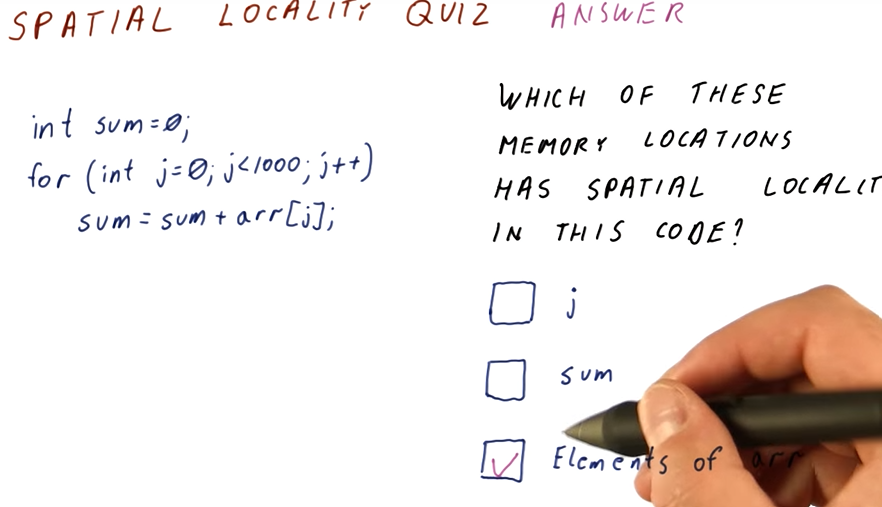 SPATIAL LOCALITY QUIZ ANSWER
int sum=0;
for (int j=0; j<1000; j++)
sum = sum + arr[j];
WHICH OF THESE
MEMORY LOCATIONS
HAS SPATIAL LOCALIT
IN THIS CODE?
j
sum
Elements of arr